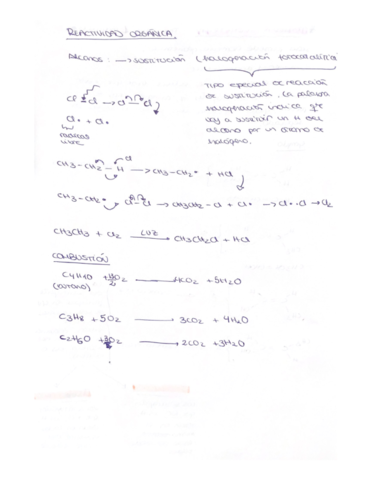 REACTIVIDAD ORGÁNICA.
Alcanos: → SUSTITUCIÓN (halogenación fotocatalítica
TIPO ESPECIAL DE REACCIÓN
DE SUSTITUCIÓN. La palabra
halogenación indica que
voy a sustituir un H del
alcano por un átomo de
halógeno.
Cl Cl → Cl Cl
Cl• + Cl•
CH3-CH2-H Cl → CH3-CH2• + HCl
CH3-CH2• Cl-Cl → CH3CH2-Cl + Cl• → Cl•.Cl → Cl2
CH3CH3 + Cl2 LUZ CH3CH2Cl + HCl
COMBUSTIÓN
C4H10 + O2 4CO2 + 5H2O
(BUTANO)
C3H8 + 5O2 3CO2 + 4H2O
C2H6O + O2 2CO2 + 3H2O